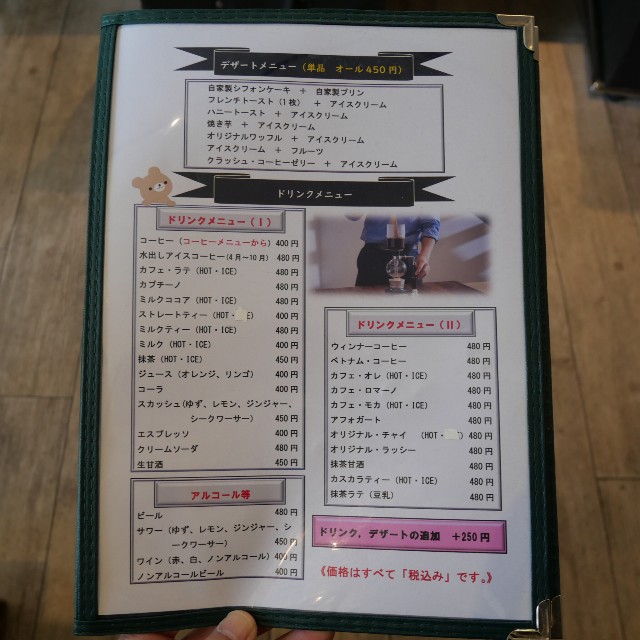 デザートメニュー（単品　オール450円）
自家製シフォンケーキ　＋　自家製プリン
フレンチトースト（1枚）　＋　アイスクリーム
ハニートースト　＋　アイスクリーム
焼き芋　＋　アイスクリーム
オリジナルワッフル　＋　アイスクリーム
アイスクリーム　＋　フルーツ
クラッシュ・コーヒーゼリー　＋　アイスクリーム
ドリンクメニュー
ドリンクメニュー（Ⅰ）
コーヒー（コーヒーメニューから）400円
水出しアイスコーヒー(4月～10月) 480円
カフェ・ラテ（HOT・ICE） 480円
カプチーノ 480円
ミルクココア（HOT・ICE） 480円
ストレートティー（HOT・ E） 400円
ミルクティー（HOT・ICE） 480円
ミルク（HOT・ICE） 400円
抹茶（HOT・ICE） 450円
ジュース（オレンジ、リンゴ） 400円
コーラ 400円
スカッシュ(ゆず、レモン、ジンジャー、
シークワーサー） 450円
エスプレッソ 400円
クリームソーダ 480円
生甘酒 450円
アルコール等
ビール 480円
サワー（ゆず、レモン、ジンジャー、シ
ークワーサー） 450円
ワイン（赤、白、ノンアルコール）400円
ノンアルコールビール 400円
ドリンクメニュー（Ⅱ）
ウィンナーコーヒー 480円
ベトナム・コーヒー 480円
カフェ・オレ（HOT・ICE） 480円
カフェ・ロマーノ 480円
カフェ・モカ（HOT・ICE） 480円
アフォガート 480円
オリジナル・チャイ　（HOT・ ）480円
オリジナル・ラッシー 480円
抹茶甘酒 480円
カスカラティー（HOT・ICE） 480円
抹茶ラテ（豆乳） 480円
ドリンク、デザートの追加　＋250円
《価格はすべて「税込み」です。》